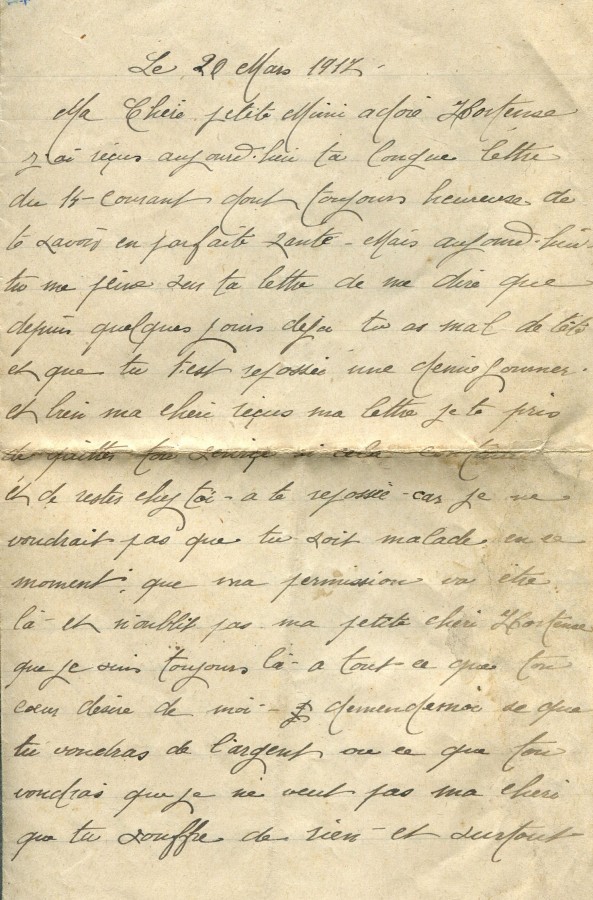 Le 20 Mars 1917
Ma Chéri petite Mimi adoré Hortense
j ai reçus aujourd'hui ta longue lettre
du 14 courant dont toujours heureuse de
te savoir en parfaite santé - Mais aujourd'hui
tu me peine sur ta lettre de me dire que
depuis quelques jours deja tu as mal de tête
et que tu t'est reposée une demie journer.
et bien ma chéri reçus ma lettre je te pris
de quitter ton service si cela continue
et de rester chez toi - a te reposée - car je ne
voudrait pas que tu soit malade en ce
moment, que ma permission va être
là - et n'oublit pas ma petite chéri Hortense
que je suis toujours là - a tout ce que ton
cœur désire de moi - demendemoi se que
tu voudras de l'argent ou ce que ton
voudras que je ne veut pas ma chéri
que tu souffre de rien - et surtout